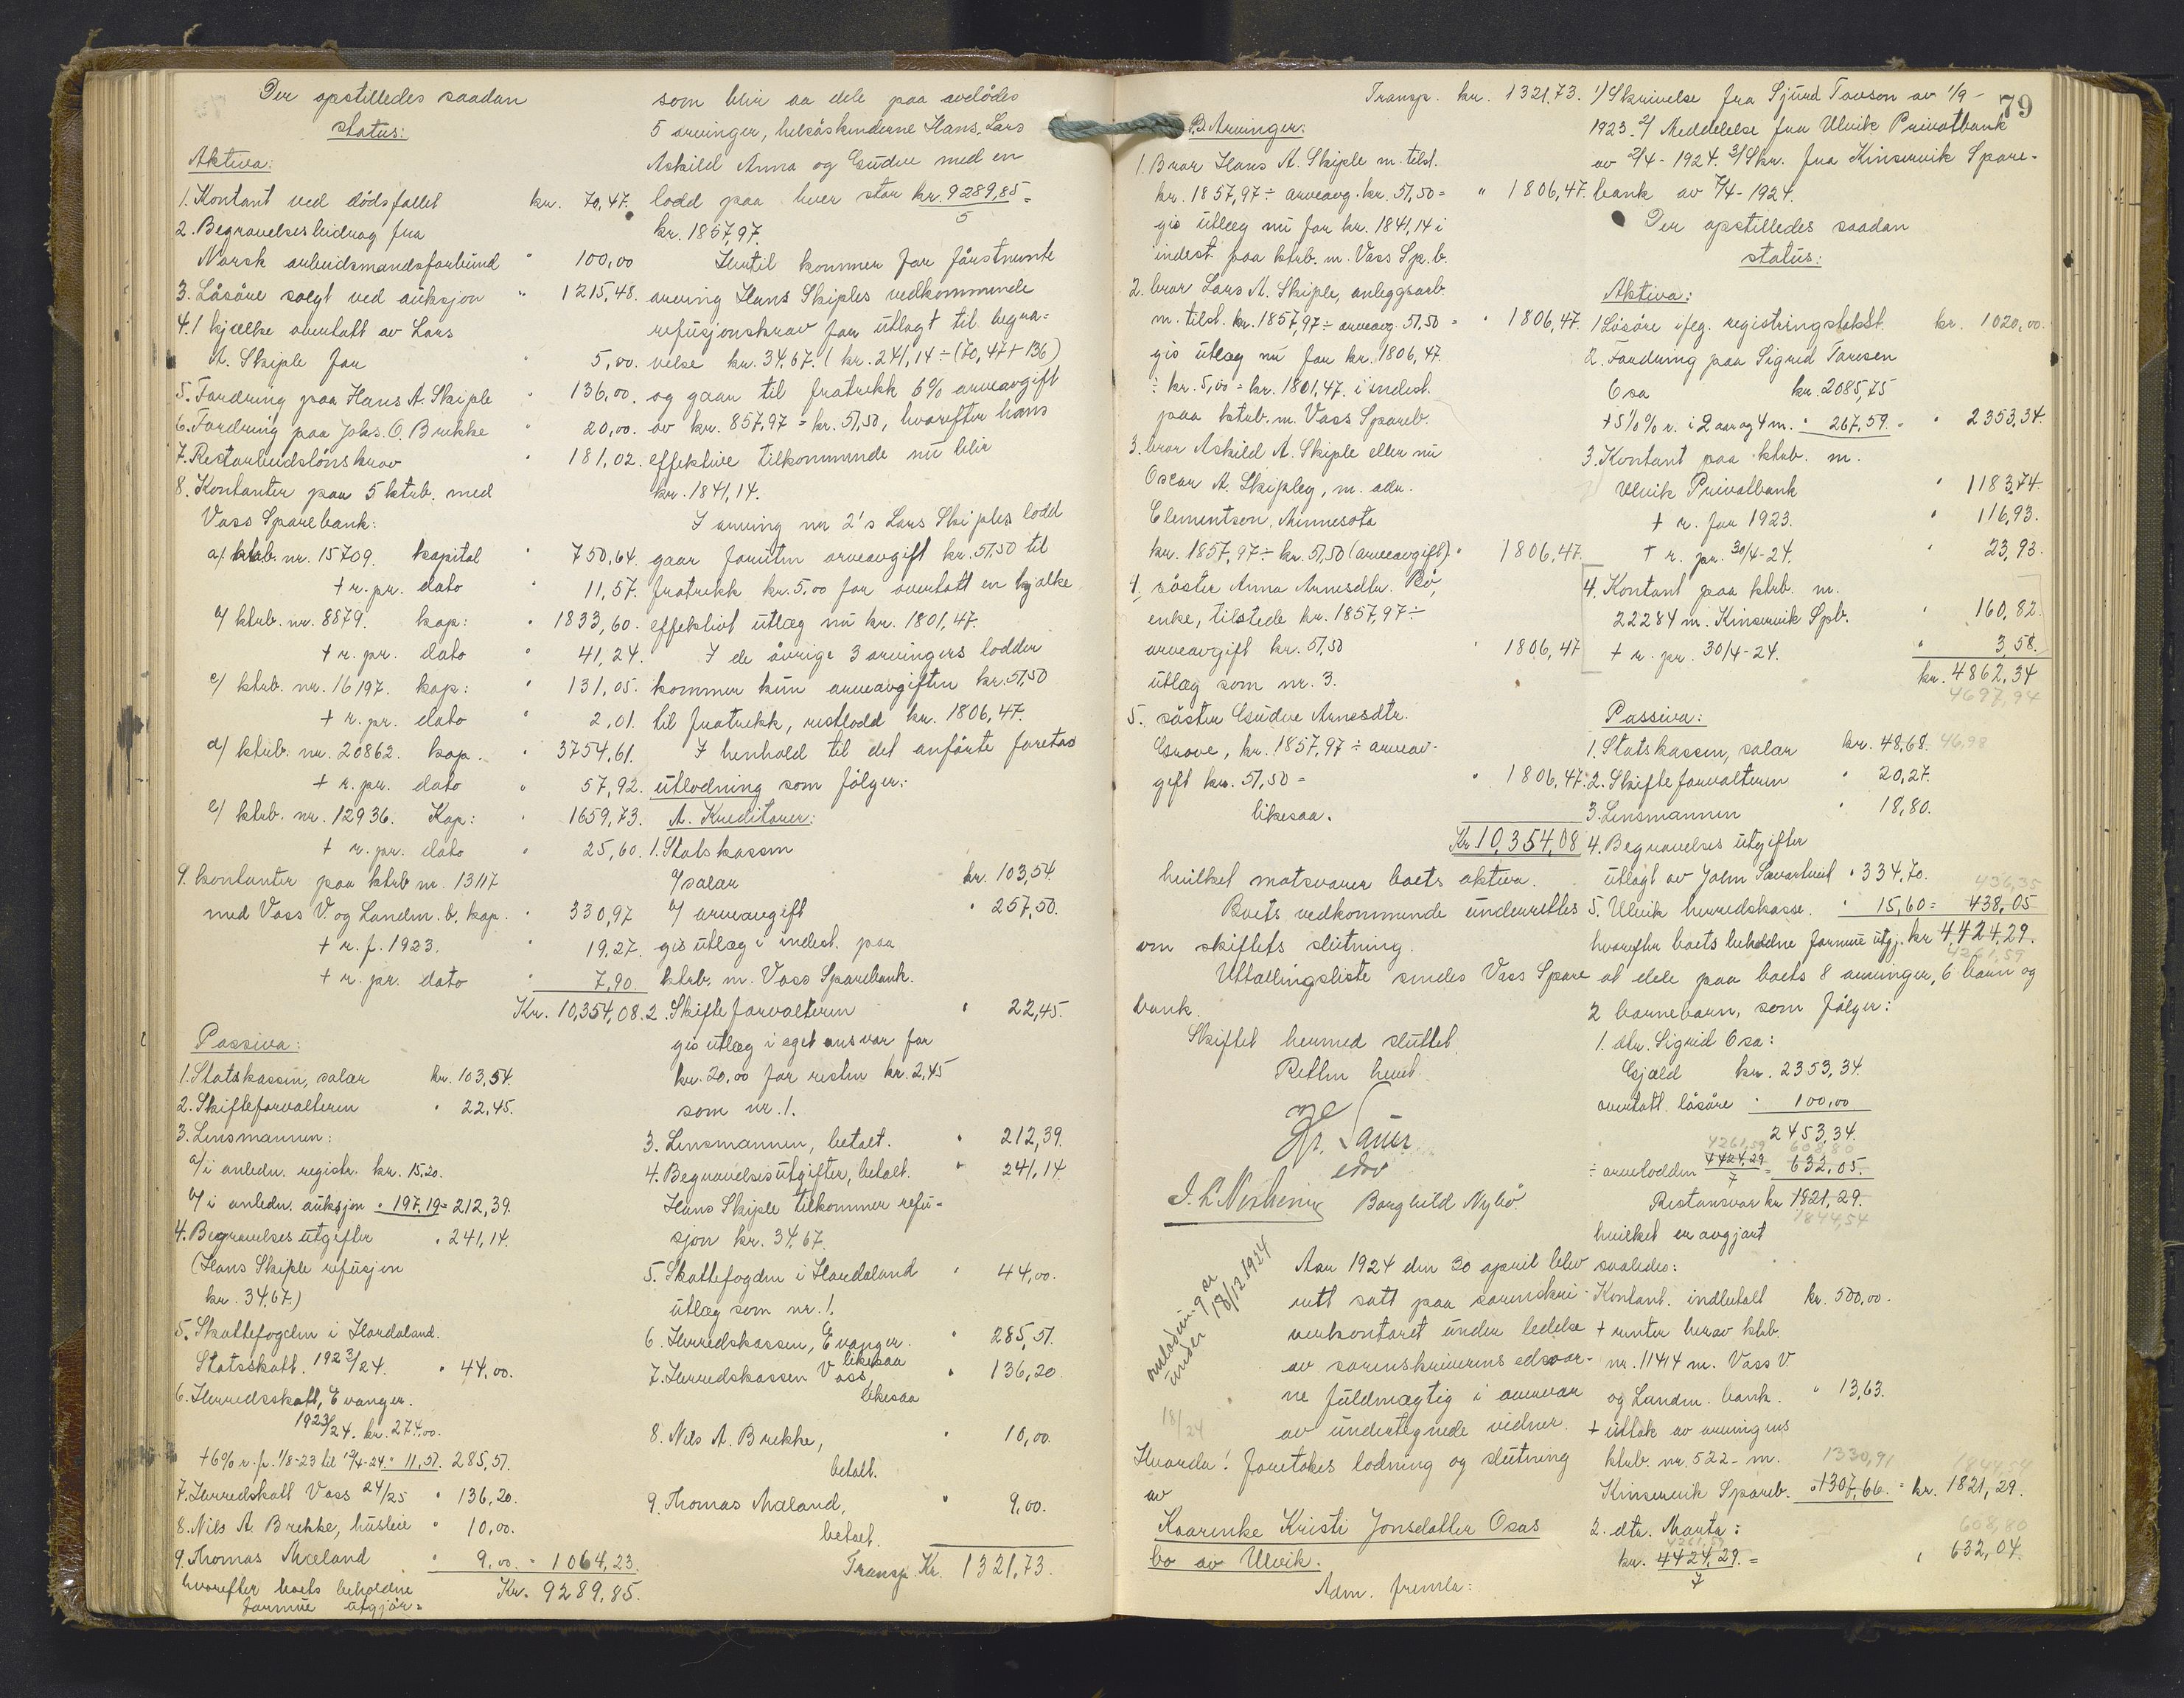 Der opstilledes saadan
status:
Aktiva:
1. Kontant ved dödsfallet kr. 70,47.
2. Begravelsesbidrag fra
Norsk arbeidsmandsforbund " 100,00
3. Lösöre solgt ved auksjon " 1215,48.
4. 1 kjælke overtatt av Lars
A. Skiple for " 5,00.
5. Fordring paa Hans A. Skiple " 136,00.
6. Fordring paa Johs. O. Brekke " 20,00.
7. Restarbeidslönskrav " 181,02.
8. Kontanter paa 5 ktrb. med
Voss Sparebank:
a/ ktrb. nr. 15709. kapital " 750,64
+ r. pr. dato " 11,57.
b/ ktrb. nr. 8879. kap: " 1833,60.
+ r. pr. dato " 41,24.
c/ ktrb. nr. 16197. kap: " 131,05.
+ r. pr. dato " 2,01.
d/ ktrb. nr. 20862. kap. " 3754,61.
+ r. pr. dato " 57,92.
e/ ktrb. nr. 12936. Kap: " 1659,73.
+ r. pr. dato " 25,60.
9. kontanter paa ktrb nr. 13117
med Voss V. og Landm. b. kap. " 330,97
+ r. f. 1923. " 19,27.
+ r. pr. dato " 7,90
Kr. 10,354,08.
Passiva:
1. Statskassen, salær kr. 103,54.
2. Skifteforvalteren " 22,45.
3. Lensmannen:
a/ i anledn. registr. kr. 15,20.
b/ i anledn. auksjon " 197,19 = 212,39.
4. Begravelsesutgifter " 241,14.
(Hans Skiple refusjon
kr. 34,67.)
5. Skattefogden i Hordaland.
Statsskatt. 1923/24. " 44,00.
6. Herredsskatt, Evanger.
1923/24. kr. 274,00.
+ 6% r. f. 1/8-23 til 12/4-24 " 11,51. 285,51.
7. Herredskatt Voss 24/25 " 136,20.
8. Nils A. Brekke, husleie " 10,00.
9. Thomas Mæland " 9,00. = 1064,23.
hvorefter boets beholdne Kr. 9289,85.
formue utgjör =
som blir aa dele paa avdödes
5 arvinger, helsöskenderne Hans, Lars
Askild Anna og Gudve med en
lodd paa hver stor kr. 9289,85 =
5
kr. 1857,97.
Hertil kommer for förstnevnte
arving Hans Skiples vedkommende
refusjonskrav for utlagt til begra=
velse kr. 34,67. (kr. 241,14 ÷ (70,47 + 136)
og gaar til fratrekk 6% arveavgift
av kr. 857,97 = kr. 51,50, hvorefter hans
effektive tilkommende nu blir
kr. 1841,14.
I arving nr 2's Lars Skiples lodd
gaar foruten arveavgift kr. 51,50 til
fratrekk kr. 5,00 for overtatt en kjælke
effektivt utlæg nu kr. 1801,47.
I de övrige 3 arvingers lodder
kommer kun arveavgiften kr. 51,50
til fratrekk, restlodd kr. 1806,47.
I henhold til det anförte foretas
utlodning som fölger:
A. Kreditorer:
1. Statskassen
a/ salær kr. 103,54
b/ arveavgift " 257,50.
gis utlæg i indest. paa
ktrb. m. Voss Sparebank.
2. Skifteforvalteren " 22,45.
gis utlæg i eget ansvar for
kr. 20,00 for resten kr. 2,45
som nr. 1.
3. Lensmannen, betalt. " 212,39.
4. Begravelsesutgifter, betalt. " 241,14
Hans Skiple tilkommer refu-
sjon kr. 34,67.
5. Skattefogden i Hordaland " 44,00.
utlæg som nr. 1.
6. Herredskassen, Evanger. " 285,51.
likesaa
7. Herredskassen Voss, " 136,20.
likesaa
8. Nils A. Brekke, " 10,00.
betalt.
9. Thomas Mæland, " 9,00.
betalt.
Transp. Kr. 1321,73.
79
Transp. kr. 1321,73.
B. Arvinger:
1. Bror Hans A. Skiple m. tilst.
kr. 1857,97 ÷ arveavg. kr. 51,50 = " 1806,47.
gis utlæg nu for kr. 1841,14 i
indest. paa ktrb. m. Voss Sp. b.
2. bror Lars A. Skiple, anleggsarb
m. tilst. kr. 1857,97 ÷ arveavg. 51,50 = " 1806,47.
gis utlæg nu for kr. 1806,47.
÷ kr. 5,00 = kr. 1801,47. i indest.
paa ktrb. m. Voss Spareb.
3. bror Askild A. Skiple eller nu
Oscar A. Skipleg, m. adr.
Clementson, Minnesota
kr. 1857,97 ÷ kr. 51,50 (arveavgift) " 1806,47.
4. söster Anna Arnesdtr. Bö,
enke, tilstede kr. 1857,97 ÷
arveavgift kr. 51,50 " 1806,47
utlæg som nr. 3.
5. söster Gudve Arnesdtr.
Grove, kr. 1857,97 ÷ arveav-
gift kr. 51,50 = " 1806,47.
likesaa.
Kr 10,354,08
hvilket motsvarer boets aktiva.
Boets vedkommende underrettes
om skiftets slutning.
Uttællingsliste sendes Voss Spare
bank.
Skiftet hermed sluttet.
Retten hevet.
Hr. Sauer
edsv
Borghild Nybö
omlodning se
under 18/12 1924
18/24
Aar 1924 den 30 april blev
rett satt paa sorenskri-
verkontoret under ledelse
av sorenskriverens edsvor-
ne fuldmægtig i overvær
av undertegnede vidner.
Hvorda! foretokes lodning og slutning
av
Kaarenke Kristi Jonsdatter Osas
bo av Ulvik.
Adm. fremla:
1/ Skrivelse fra Sjurd Tovson av 1/9-
1923. 2/ Meddelelse fra Ulvik Privatbank
av 2/4 - 1924. 3/ Skr. fra Kinservik Spare-
bank av 7/4-1924.
Der opstilledes saadan
status:
Aktiva:
1 Lösöre iflg. registringstakst. kr. 1020,00.
2. Fordring paa Sigrid Torsen
Osa kr. 2085,75
+ 5½% r. i 2 aar og 4 m. " 267,59. = " 2353,34.
3. Kontant paa ktrb. m.
Ulvik Privatbank " 1183,74.
+ r. for 1923. " 116,93.
+ r. pr. 30/4-24. " 23,93.
4. Kontant paa ktrb. nr.
22284 m. Kinservik Spb. " 160,82.
+ r. pr. 30/4-24. " 3,58.
kr. 4862,34
4697,94
Passiva:
1. Statskassen, salær kr. 48,68. 46,98
2. Skifteforvalteren " 20,27.
3. Lensmannen " 18,80.
4. Begravelses utgifter
utlagt av " 334,70. 436,35
5. Ulvik herredskasse. " 15,60 = 438,05
hvorefter boets beholdne formue utgj. kr 4424,29.
4261,59
at dele paa boets 8 arvinger, 6 barn og
2 barnebarn, som fölger:
1. dtr. Sigrid Osa:
Gjæld kr. 2353,34.
overtatt lösöre " 100,00
2453,34.
4261,59 608,80
÷ arvelodden 4424,29 = 632,05.
7
Restansvar kr 1821,29.
1844,54
hvilket er avgjort
saaledes:
Kontant. indbetalt kr. 500,00.
+ renter herav ktrb.
nr. 11414 m. Voss V.
og Landm. bank. " 13,63.
+ uttak av arvingens
ktrb. nr. 522 - m. 1330,91 1844,54
Kinservik Spareb. " 1307,66. = kr. 1821,29.
2. dtr. Marta: 608,80
4261,59
kr. 4424,29. = " 632,04.
7